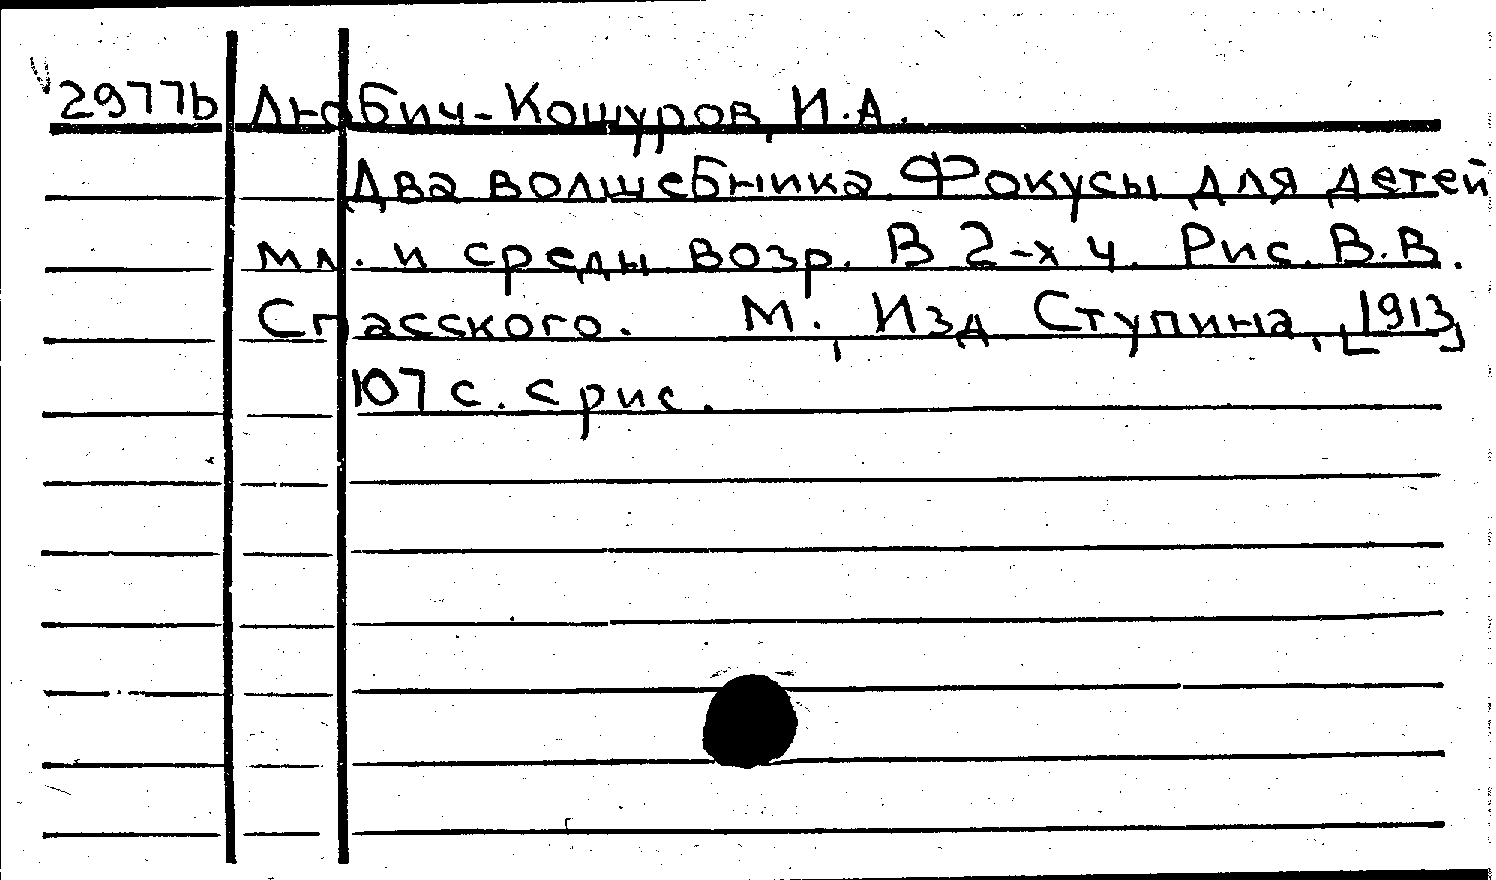 2977b Любич-Кошуров, И.А.
Два волшебника. Фокусы для детей
мл. и среды возр. В 2-х ч. Рис. В.В.
Спасского. М., Изд Ступина, [1913]
107 с. с рис.